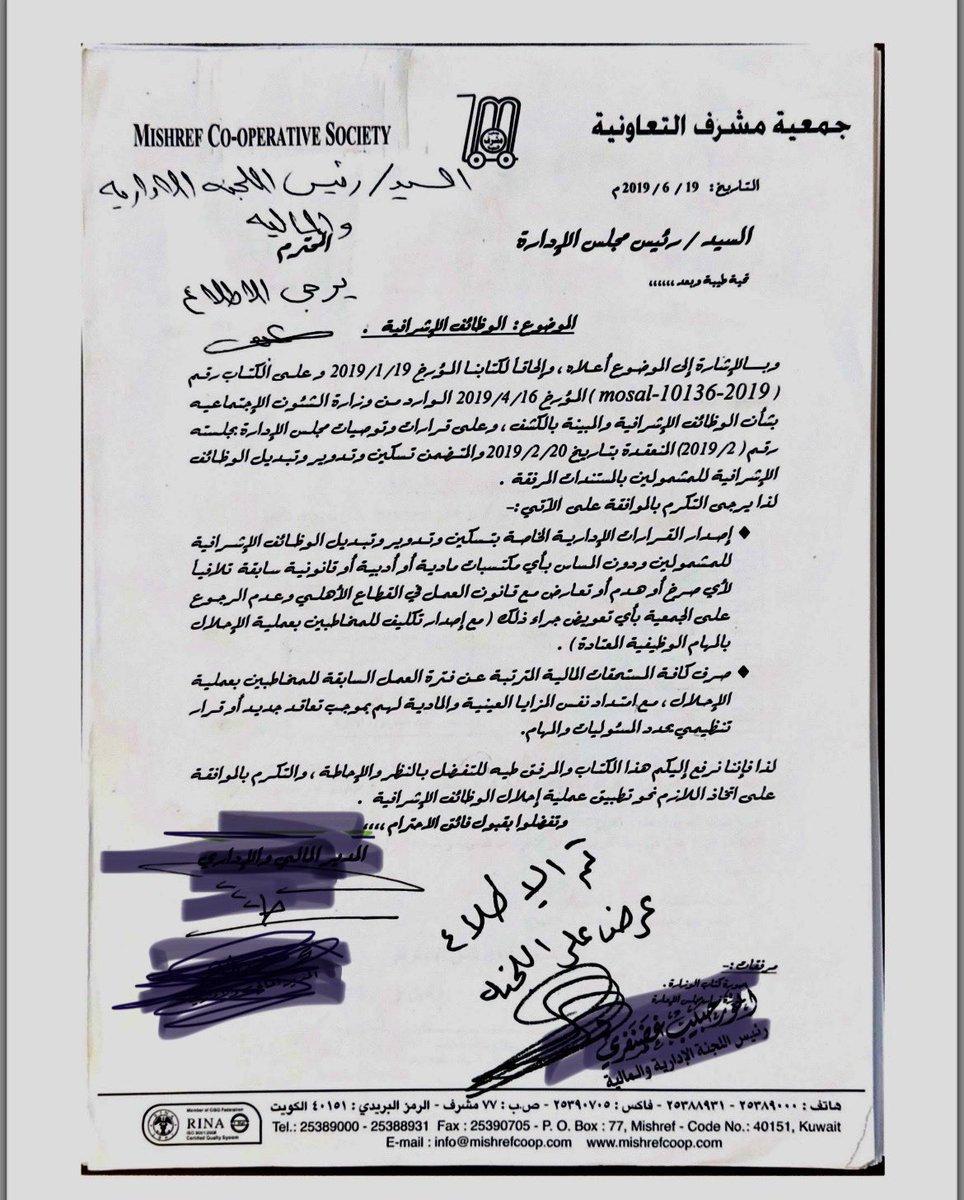 MISHREF CO-OPERATIVE SOCIETY
جمعية مشرف التعاونية
مشرف
التاريخ: 19 / 6 / 2019م
السيد / رئيس اللجنه الاداريه
والماليه
المحترم
يرجى الاطلاع
السيد / رئيس مجلس الإدارة
تحية طيبة وبعد ،،،،،،
الموضوع : الوظائف الإشرافية .
وبالإشارة إلى الموضوع أعلاه ، وإلحاقاً لكتابنا المؤرخ 2019/1/19 وعلى الكتاب رقم
( mosal-10136-2019 ) المؤرخ 2019/4/16 الوارد من وزارة الشئون الإجتماعيه
بشأن الوظائف الإشرافية والمبينة بالكشف ، وعلى قرارات وتوصيات مجلس الإدارة بجلسته
رقم ( 2019/2) المنعقدة بتاريخ 2019/2/20 والمتضمن تسكين وتدوير وتبديل الوظائف
الإشرافية للمشمولين بالمستندات المرفقة .
لذا يرجى التكرم بالموافقة على الآتي :-
♦ إصدار القرارات الإدارية الخاصة بتسكين وتدوير وتبديل الوظائف الإشرافية
للمشمولين ودون المساس بأي مكتسبات مادية أو أدبية أو قانونية سابقة تلافياً
لأي صرخ أو هدم أو تعارض مع قانون العمل في القطاع الأهلي وعدم الرجوع
على الجمعية بأي تعويض جراء ذلك ( مع إصدار تكليف للمخاطبين بعملية الإحلال
بالمهام الوظيفية المعتادة ) .
♦ صرف كافة المستحقات المالية المترتبة عن فترة العمل السابقة للمخاطبين بعملية
الإحلال ، مع امتداد نفس المزايا العينية والمادية لهم بموجب تعاقد جديد أو قرار
تنظيمي يحدد المسئوليات والمهام.
لذا فإننا نرفع إليكم هذا الكتاب والمرفق طيه للتفضل بالنظر والإحاطة ، والتكرم بالموافقة
على اتخاذ اللازم نحو تطبيق عملية إحلال الوظائف الإشرافية .
وتفضلوا بقبول فائق الاحترام ،،،،
المدير المالي والإداري
تم الاطلاع
عرض على اللجنه
مرفقات :-
صورة كتاب الوزارة .
رئيس اللجنة الإدارية والمالية
هاتف : ٢٥٣٨٩٠٠٠ - ٢٥٣٨٨٩٣١ - فاكس : ٢٥٣٩٠٧٠٥ - ص.ب : ٧٧ مشرف - الرمز البريدي : ٤٠١٥١ الكويت
Tel.: 25389000 - 25388931 Fax : 25390705 - P. O. Box : 77, Mishref - Code No.: 40151, Kuwait
E-mail : info@mishrefcoop.com www.mishrefcoop.com
Member of CISQ Federation
RINA
ISO 9001:2008
Certified Quality System